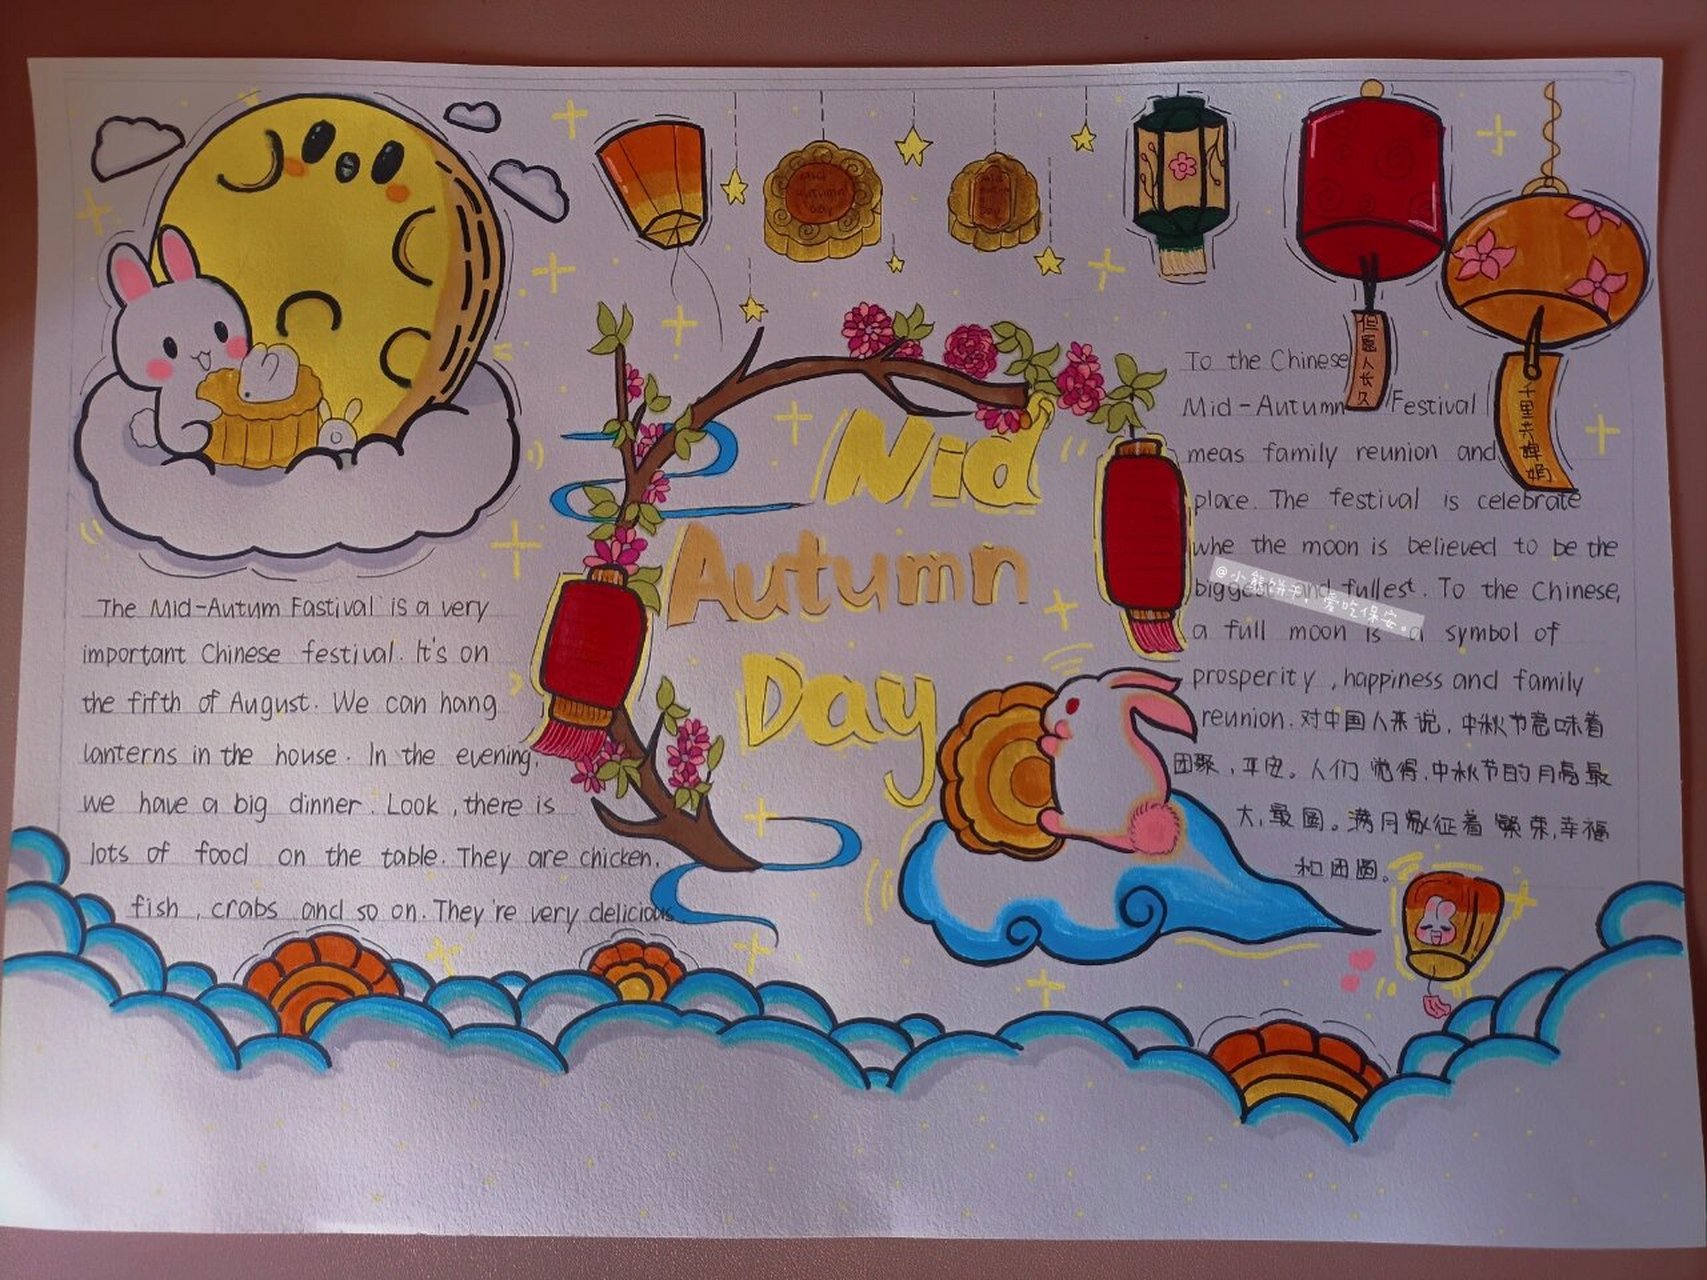 Mid
Autumn
Day
The Mid-Autum Fastival is a very
important Chinese festival. It's on
the fifth of August. We can hang
lanterns in the house. In the evening,
we have a big dinner. Look, there is
lots of food on the table. They are chicken,
fish, crabs and so on. They're very delicious
mid
autumn
day
mid
autumn
day
但愿人长久
千里共婵娟
To the Chinese
Mid-Autumn Festival
meas family reunion and
place. The festival is celebrate
whe the moon is believed to be the
biggest and fullest. To the Chinese,
a full moon is a symbol of
prosperity, happiness and family
reunion. 对中国人来说,中秋节意味着
团聚,平安。人们觉得,中秋节的月亮最
大,最圆。满月象征着繁荣,幸福
和团圆。
@小熊饼干,爱吃保安。